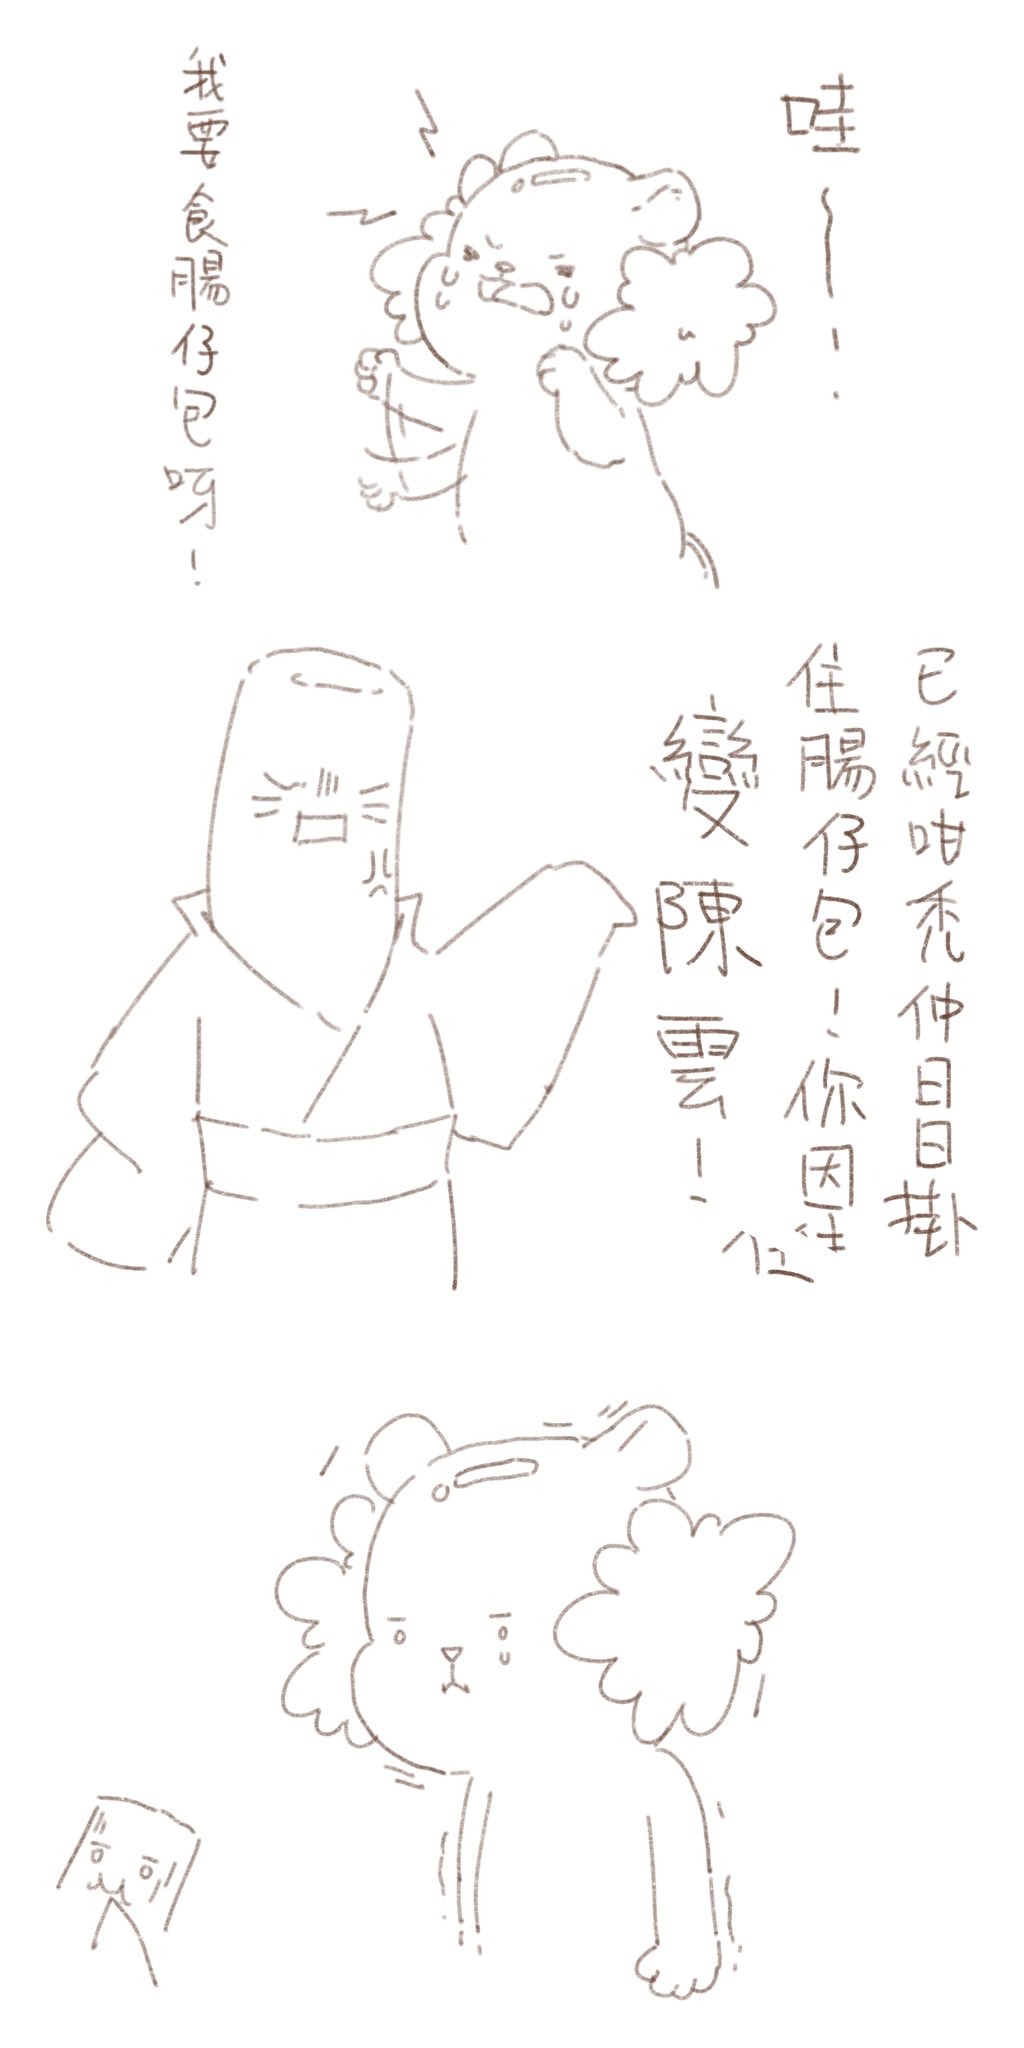 哇～！
我要食腸仔包呀！
已經咁禿仲日日掛
住腸仔包！你因住
變陳雲！